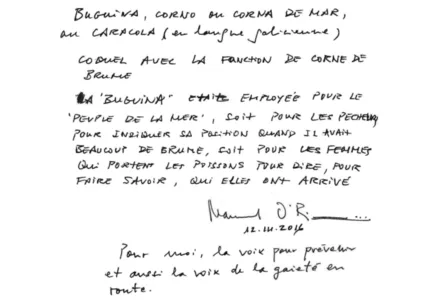 BUGUINA, CORNO OU CORNA DE MAR,
OU CARACOLA (en langue galicienne)
COQUEL AVEC LA FONCTION DE CORNE DE
BRUME
LA 'BUGUINA' ETAIT EMPLOYÉE POUR LE
'PEUPLE DE LA MER', SOIT POUR LES PECHEURS
POUR INDIQUER SA POSITION QUAND IL AVAIT
BEAUCOUP DE BRUME, SOIT POUR LES FEMMES
QUI PORTENT LES POISSONS POUR DIRE, POUR
FAIRE SAVOIR, QUI ELLES ONT ARRIVÉ
12.III.2016
Pour moi, la voix pour prévenir
et aussi la voix de la gaieté en
route.